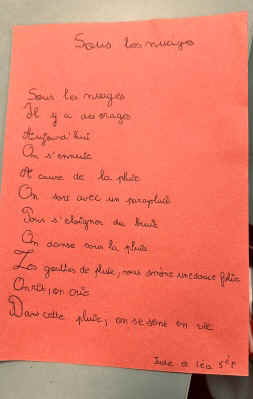 Sous les nuages
Sous les nuages
Il y a des orages
Aujourd'hui
On s'ennuie
A cause de la pluie
On sort avec un parapluie
Pour s'éloigner du bruit
On danse sous la pluie
Les gouttes de pluie, nous amène une douce folie
On rit, on crie
Dans cette pluie, on se sent en vie
Jade et Léa 5